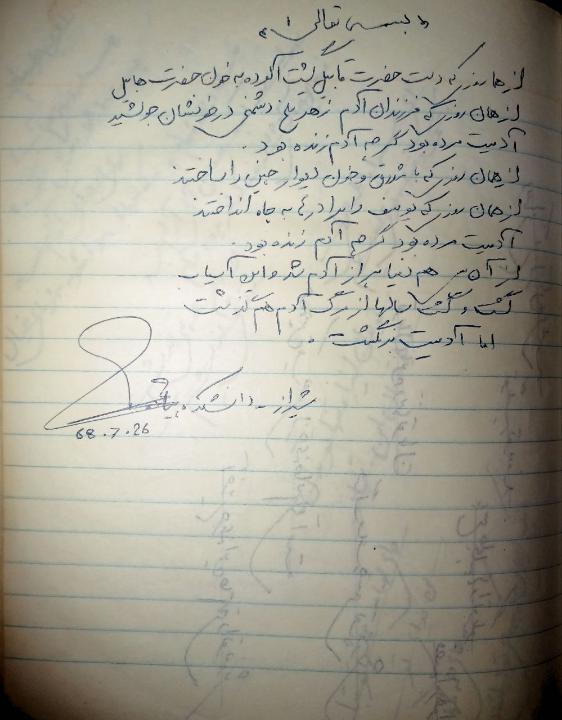 «بسمه تعالی»
از همان روزی که دست حضرت قابیل گشت آلوده به خون حضرت هابیل
از همان روزی که فرزندان آدم زهر تلخ دشمنی در خونشان جوشید
آدمیت مرده بود گرچه آدم زنده بود.
از همان روزی که با شلاق و خون دیوار چین را ساختند
از همان روزی که یوسف را برادرها به چاه انداختند
آدمیت مرده بود گرچه آدم زنده بود.
از آن پس هم دنیا پر از آدم شد و این آسیاب
گشت و گشت سالها از مرگ آدم هم گذشت
اما آدمیت برنگشت.
شیراز - دانشکده
68.7.26